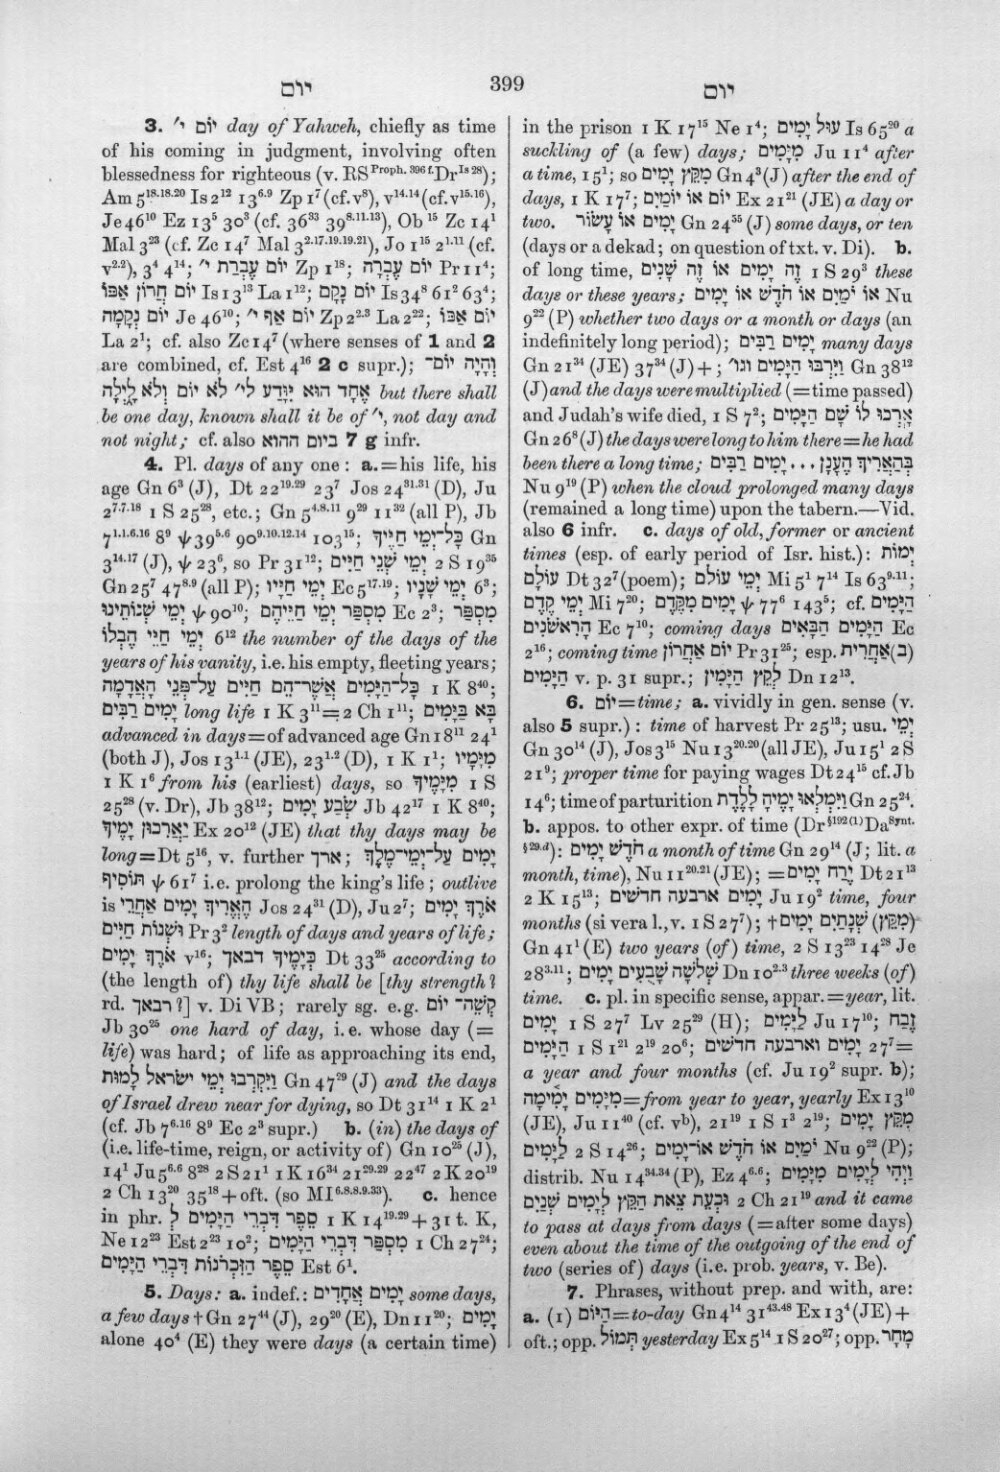 יום
399
יום
3. יוֹם י׳ day of Yahweh, chiefly as time
of his coming in judgment, involving often
blessedness for righteous (v. RS Proph. 396 f. Dr Is 28);
Am 5¹⁸·¹⁸·²⁰ Is 2¹² 13⁶·⁹ Zp 1⁷ (cf. v⁸), v¹⁴·¹⁴ (cf. v¹⁵·¹⁶),
Je 46¹⁰ Ez 13⁵ 30³ (cf. 36³³ 39⁸·¹¹·¹³), Ob ¹⁵ Zc 14¹
Mal 3²³ (cf. Zc 14⁷ Mal 3²·¹⁷·¹⁹·¹⁹·²¹), Jo 1¹⁵ 2¹·¹¹ (cf.
v²·²), 3⁴ 4¹⁴; יוֹם עֶבְרַת י׳ Zp 1¹⁸; יוֹם עֶבְרָה Pr 11⁴;
יוֹם חֲרוֹן אַפּוֹ Is 13¹³ La 1¹²; יוֹם נָקָם Is 34⁸ 61² 63⁴;
יוֹם נְקָמָה Je 46¹⁰; יוֹם אַף י׳ Zp 2²·³ La 2²²; יוֹם אַפּוֹ
La 2¹; cf. also Zc 14⁷ (where senses of 1 and 2
are combined, cf. Est 4¹⁶ 2 c supr.); וְהָיָה יוֹם־
אֶחָד הוּא יִוָּדַע לי׳ לֹא יוֹם וְלֹא לָיְלָה but there shall
be one day, known shall it be of י׳, not day and
not night; cf. also ביום ההוא 7 g infr.
4. Pl. days of any one: a. = his life, his
age Gn 6³ (J), Dt 22¹⁹·²⁹ 23⁷ Jos 24³¹·³¹ (D), Ju
2⁷·⁷·¹⁸ 1 S 25²⁸, etc.; Gn 5⁴·⁸·¹¹ 9²⁹ 11³² (all P), Jb
7¹·¹·⁶·¹⁶ 8⁹ ψ 39⁵·⁶ 90⁹·¹⁰·¹²·¹⁴ 103¹⁵; כָּל־יְמֵי חַיֶּיךָ Gn
3¹⁴·¹⁷ (J), ψ 23⁶, so Pr 31¹²; יְמֵי שְׁנֵי חַיִּים 2 S 19³⁵
Gn 25⁷ 47⁸·⁹ (all P); יְמֵי חַיָּיו Ec 5¹⁷·¹⁹; יְמֵי שָׁנָיו 6³;
יְמֵי שְׁנוֹתֵינוּ ψ 90¹⁰; מִסְפַּר יְמֵי חַיֵּיהֶם Ec 2³; מִסְפַּר
יְמֵי חַיֵּי הֶבְלוֹ 6¹² the number of the days of the
years of his vanity, i.e. his empty, fleeting years;
כָּל־הַיָּמִים אֲשֶׁר־הֵם חַיִּים עַל־פְּנֵי הָאֲדָמָה 1 K 8⁴⁰;
יָמִים רַבִּים long life 1 K 3¹¹ = 2 Ch 1¹¹; בָּא בַּיָּמִים
advanced in days = of advanced age Gn 18¹¹ 24¹
(both J), Jos 13¹·¹ (JE), 23¹·² (D), 1 K 1¹; מִיָּמָיו
1 K 1⁶ from his (earliest) days, so מִיָּמֶיךָ 1 S
25²⁸ (v. Dr), Jb 38¹²; שְׂבַע יָמִים Jb 42¹⁷ 1 K 8⁴⁰;
יַאֲרִכוּן יָמֶיךָ Ex 20¹² (JE) that thy days may be
long = Dt 5¹⁶, v. further ארך; יָמִים עַל־יְמֵי־מֶלֶךְ
תּוֹסִיף ψ 61⁷ i.e. prolong the king's life; outlive
is הֶאֱרִיךְ יָמִים אַחֲרֵי Jos 24³¹ (D), Ju 2⁷; אֹרֶךְ יָמִים
וּשְׁנוֹת חַיִּים Pr 3² length of days and years of life;
אֹרֶךְ יָמִים v¹⁶; כְּיָמֶיךָ דבאך Dt 33²⁵ according to
(the length of) thy life shall be [thy strength?
rd. רבאך?] v. Di VB; rarely sg. e.g. קְשֵׁה־יוֹם
Jb 30²⁵ one hard of day, i.e. whose day (=
life) was hard; of life as approaching its end,
וַיִּקְרְבוּ יְמֵי ישראל לָמוּת Gn 47²⁹ (J) and the days
of Israel drew near for dying, so Dt 31¹⁴ 1 K 2¹
(cf. Jb 7⁶·¹⁶ 8⁹ Ec 2³ supr.) b. (in) the days of
(i.e. life-time, reign, or activity of) Gn 10²⁵ (J),
14¹ Ju 5⁶·⁶ 8²⁸ 2 S 21¹ 1 K 16³⁴ 21²⁹·²⁹ 22⁴⁷ 2 K 20¹⁹
2 Ch 13²⁰ 35¹⁸ + oft. (so MI⁶·⁸·⁸·⁹·³³). c. hence
in phr. סֵפֶר דִּבְרֵי הַיָּמִים לְ 1 K 14¹⁹·²⁹ + 31 t. K,
Ne 12²³ Est 2²³ 10²; מִסְפַּר דִּבְרֵי הַיָּמִים 1 Ch 27²⁴;
סֵפֶר הַזִּכְרֹנוֹת דִּבְרֵי הַיָּמִים Est 6¹.
5. Days: a. indef.: יָמִים אֲחָדִים some days,
a few days † Gn 27⁴⁴ (J), 29²⁰ (E), Dn 11²⁰; יָמִים
alone 40⁴ (E) they were days (a certain time)
in the prison 1 K 17¹⁵ Ne 1⁴; עוּל יָמִים Is 65²⁰ a
suckling of (a few) days; מִיָּמִים Ju 11⁴ after
a time, 15¹; so מִקֵּץ יָמִים Gn 4³ (J) after the end of
days, 1 K 17⁷; יוֹם אוֹ יוֹמַיִם Ex 21²¹ (JE) a day or
two. יָמִים אוֹ עָשׂוֹר Gn 24⁵⁵ (J) some days, or ten
(days or a dekad; on question of txt. v. Di). b.
of long time, זֶה יָמִים אוֹ זֶה שָׁנִים 1 S 29³ these
days or these years; אוֹ יֹמַיִם אוֹ חֹדֶשׁ אוֹ יָמִים Nu
9²² (P) whether two days or a month or days (an
indefinitely long period); יָמִים רַבִּים many days
Gn 21³⁴ (JE) 37³⁴ (J) +; וַיִּרְבּוּ הַיָּמִים וגו׳ Gn 38¹²
(J) and the days were multiplied (= time passed)
and Judah's wife died, 1 S 7²; אָרְכוּ לוֹ שָׁם הַיָּמִים
Gn 26⁸ (J) the days were long to him there = he had
been there a long time; בְּהַאֲרִיךְ הֶעָנָן . . . יָמִים רַבִּים
Nu 9¹⁹ (P) when the cloud prolonged many days
(remained a long time) upon the tabern.—Vid.
also 6 infr. c. days of old, former or ancient
times (esp. of early period of Isr. hist.): יְמוֹת
עוֹלָם Dt 32⁷ (poem); יְמֵי עוֹלם Mi 5¹ 7¹⁴ Is 63⁹·¹¹;
יְמֵי קֶדֶם Mi 7²⁰; יָמִים מִקֶּדֶם ψ 77⁶ 143⁵; cf. הַיָּמִים
הָרִאשֹׁנִים Ec 7¹⁰; coming days הַיָּמִים הַבָּאִים Ec
2¹⁶; coming time יוֹם אַחֲרוֹן Pr 31²⁵; esp. (ב)אַחֲרִית
הַיָּמִים v. p. 31 supr.; לְקֵץ הַיָּמִין Dn 12¹³.
6. יוֹם = time; a. vividly in gen. sense (v.
also 5 supr.): time of harvest Pr 25¹³; usu. יְמֵי
Gn 30¹⁴ (J), Jos 3¹⁵ Nu 13²⁰·²⁰ (all JE), Ju 15¹ 2 S
21⁹; proper time for paying wages Dt 24¹⁵ cf. Jb
14⁶; time of parturition וַיִּמְלְאוּ יָמֶיהָ לָלֶדֶת Gn 25²⁴.
b. appos. to other expr. of time (Dr §192(1) Da Synt.
§29.d): חֹדֶשׁ יָמִים a month of time Gn 29¹⁴ (J; lit. a
month, time), Nu 11²⁰·²¹ (JE); = יֶרַח יָמִים Dt 21¹³
2 K 15¹³; יָמִים ארבעה חדשים Ju 19² time, four
months (si vera l., v. 1 S 27⁷); †(מִקֵּץ) שְׁנָתַיִם יָמִים
Gn 41¹ (E) two years (of) time, 2 S 13²³ 14²⁸ Je
28³·¹¹; שְׁלֹשָׁה שָׁבֻעִים יָמִים Dn 10²·³ three weeks (of)
time. c. pl. in specific sense, appar. = year, lit.
יָמִים 1 S 27⁷ Lv 25²⁹ (H); לַיָּמִים Ju 17¹⁰; זֶבַח
הַיָּמִים 1 S 1²¹ 2¹⁹ 20⁶; יָמִים וארבעה חדשים 27⁷ =
a year and four months (cf. Ju 19² supr. b);
מִיָּמִים יָמִימָה = from year to year, yearly Ex 13¹⁰
(JE), Ju 11⁴⁰ (cf. v ᵇ), 21¹⁹ 1 S 1³ 2¹⁹; מִקֵּץ יָמִים
לַיָּמִים 2 S 14²⁶; יֹמַיִם אוֹ חֹדֶשׁ אוֹ־יָמִים Nu 9²² (P);
distrib. Nu 14³⁴·³⁴ (P), Ez 4⁶·⁶; וַיְהִי לְיָמִים מִיָּמִים
וּכְעֵת צֵאת הַקֵּץ לְיָמִים שְׁנַיִם 2 Ch 21¹⁹ and it came
to pass at days from days (= after some days)
even about the time of the outgoing of the end of
two (series of) days (i.e. prob. years, v. Be).
7. Phrases, without prep. and with, are:
a. (1) הַיּוֹם = to-day Gn 4¹⁴ 31⁴³·⁴⁸ Ex 13⁴ (JE) +
oft.; opp. תְּמוֹל yesterday Ex 5¹⁴ 1 S 20²⁷; opp. מָחָר